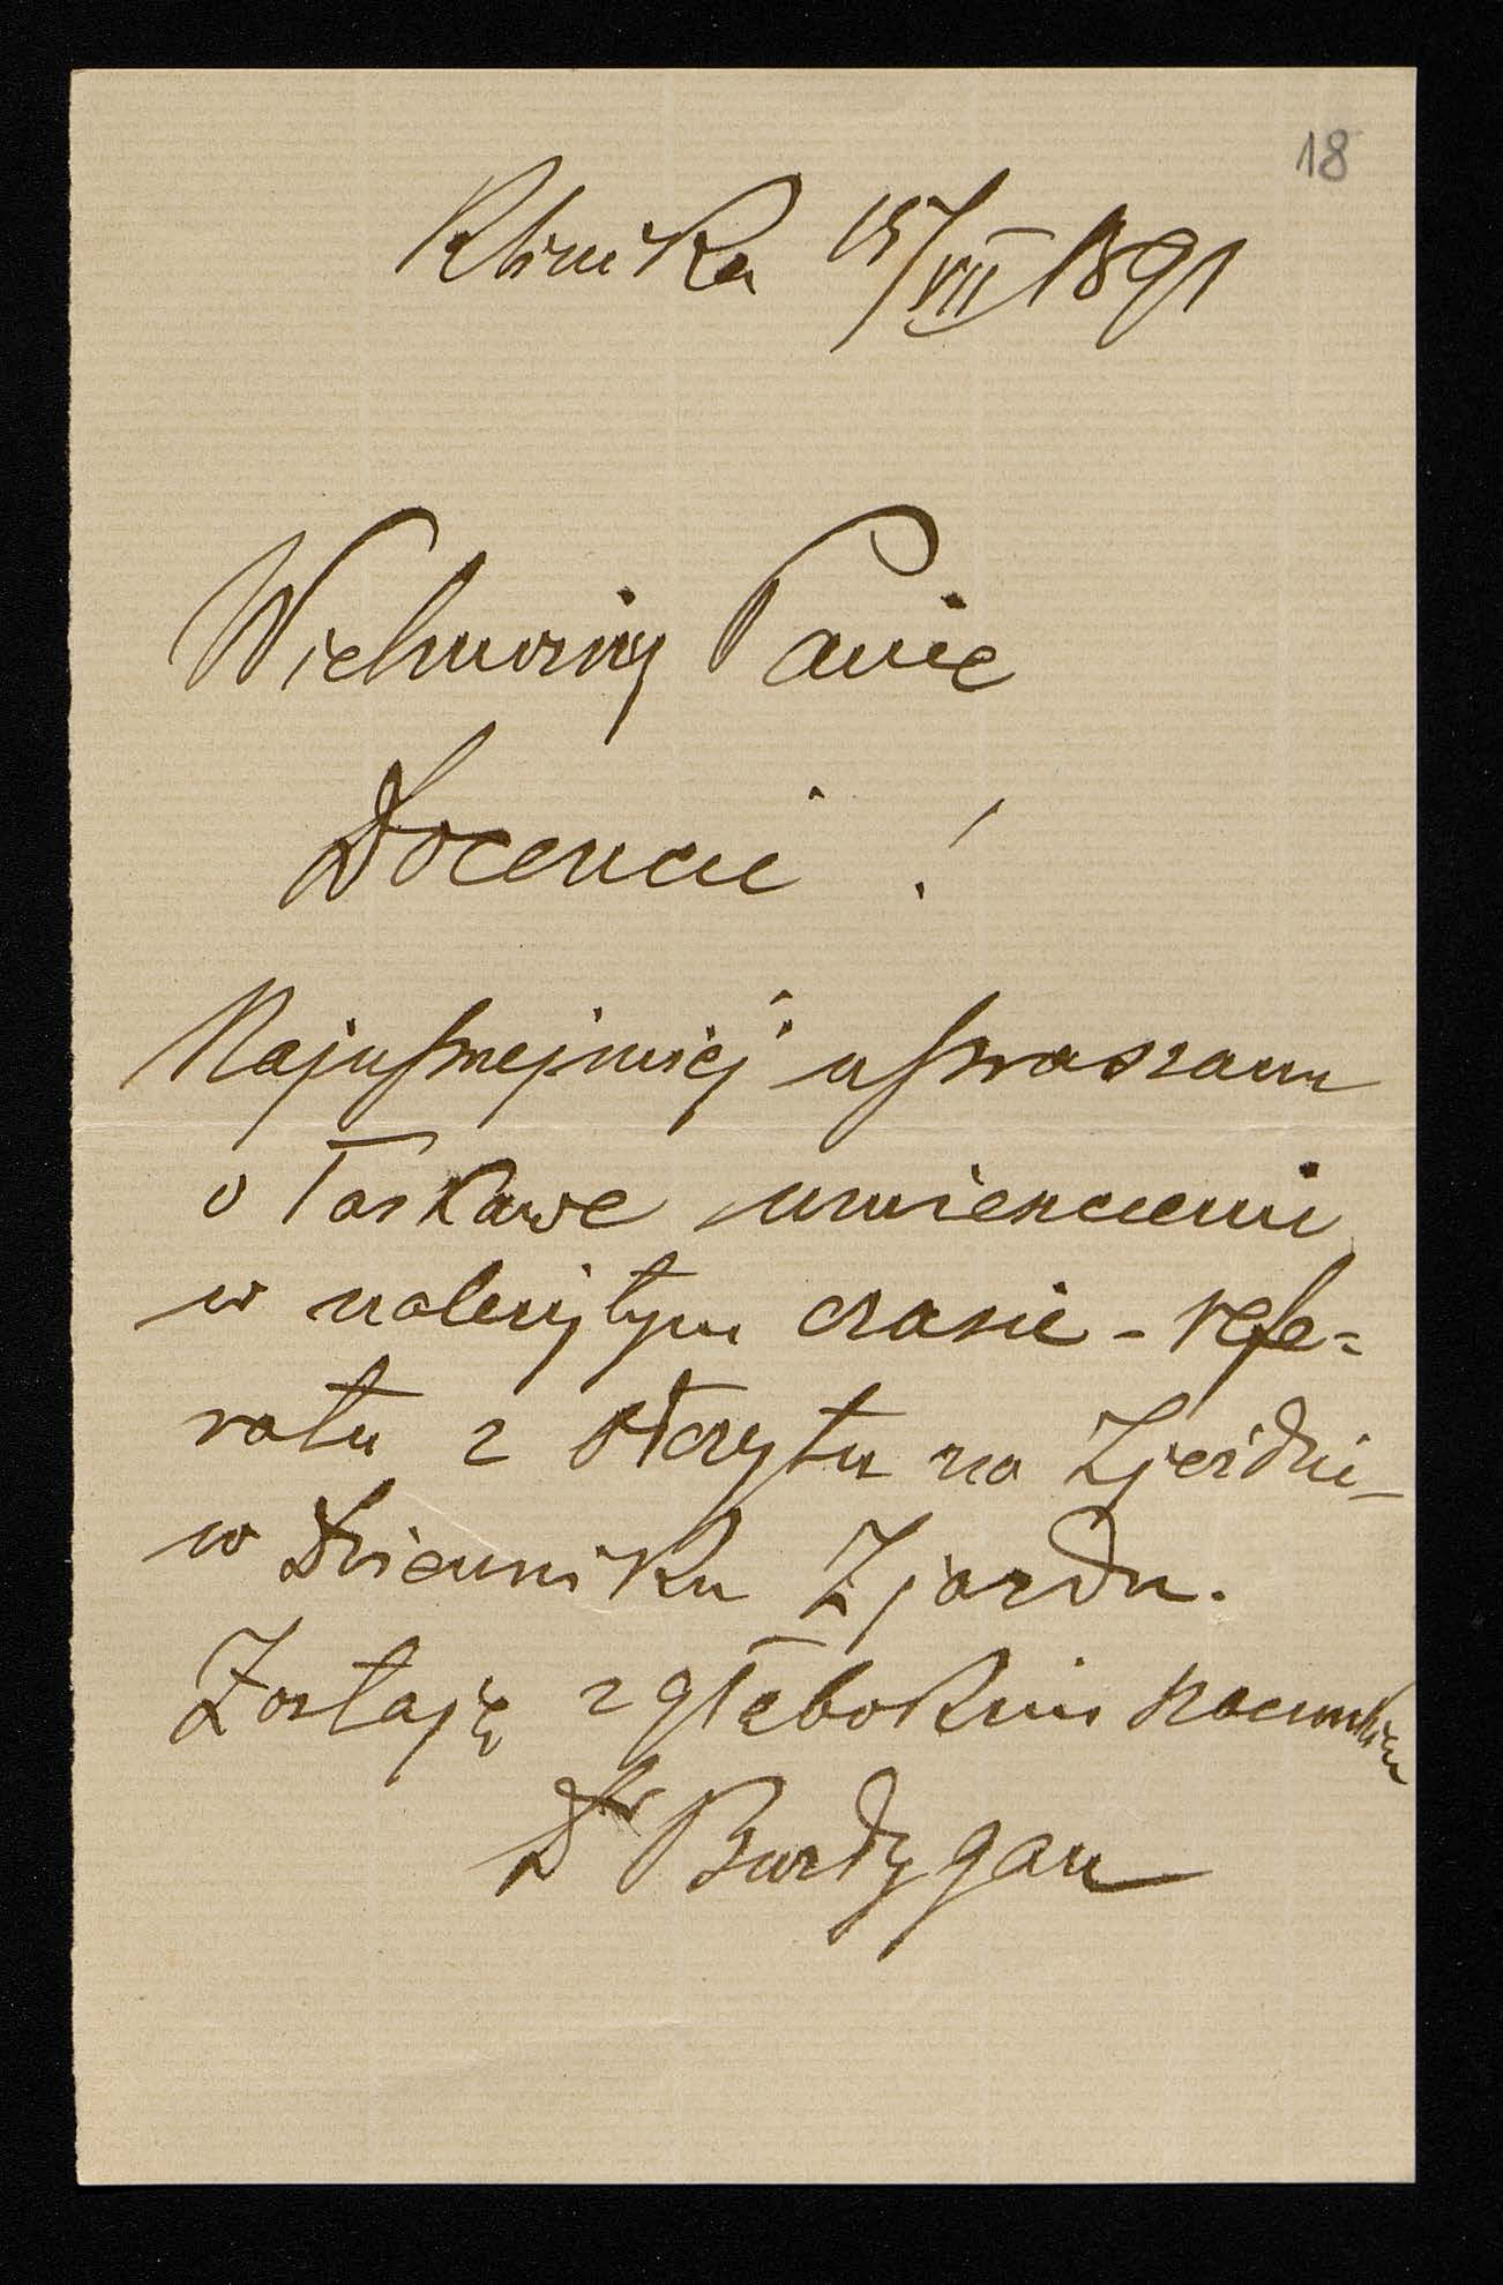 18
Klinika 15/VII 1891
Wielmożny Panie
Docencie !
Najuprzejmiej upraszam
o łaskawe umieszczenie
w należytym czasie - refe=
ratu z odczytu na Zjeździe -
w Dzienniku Zjazdu.
Zostaję z głębokim szacunkiem
Dr Burdygan